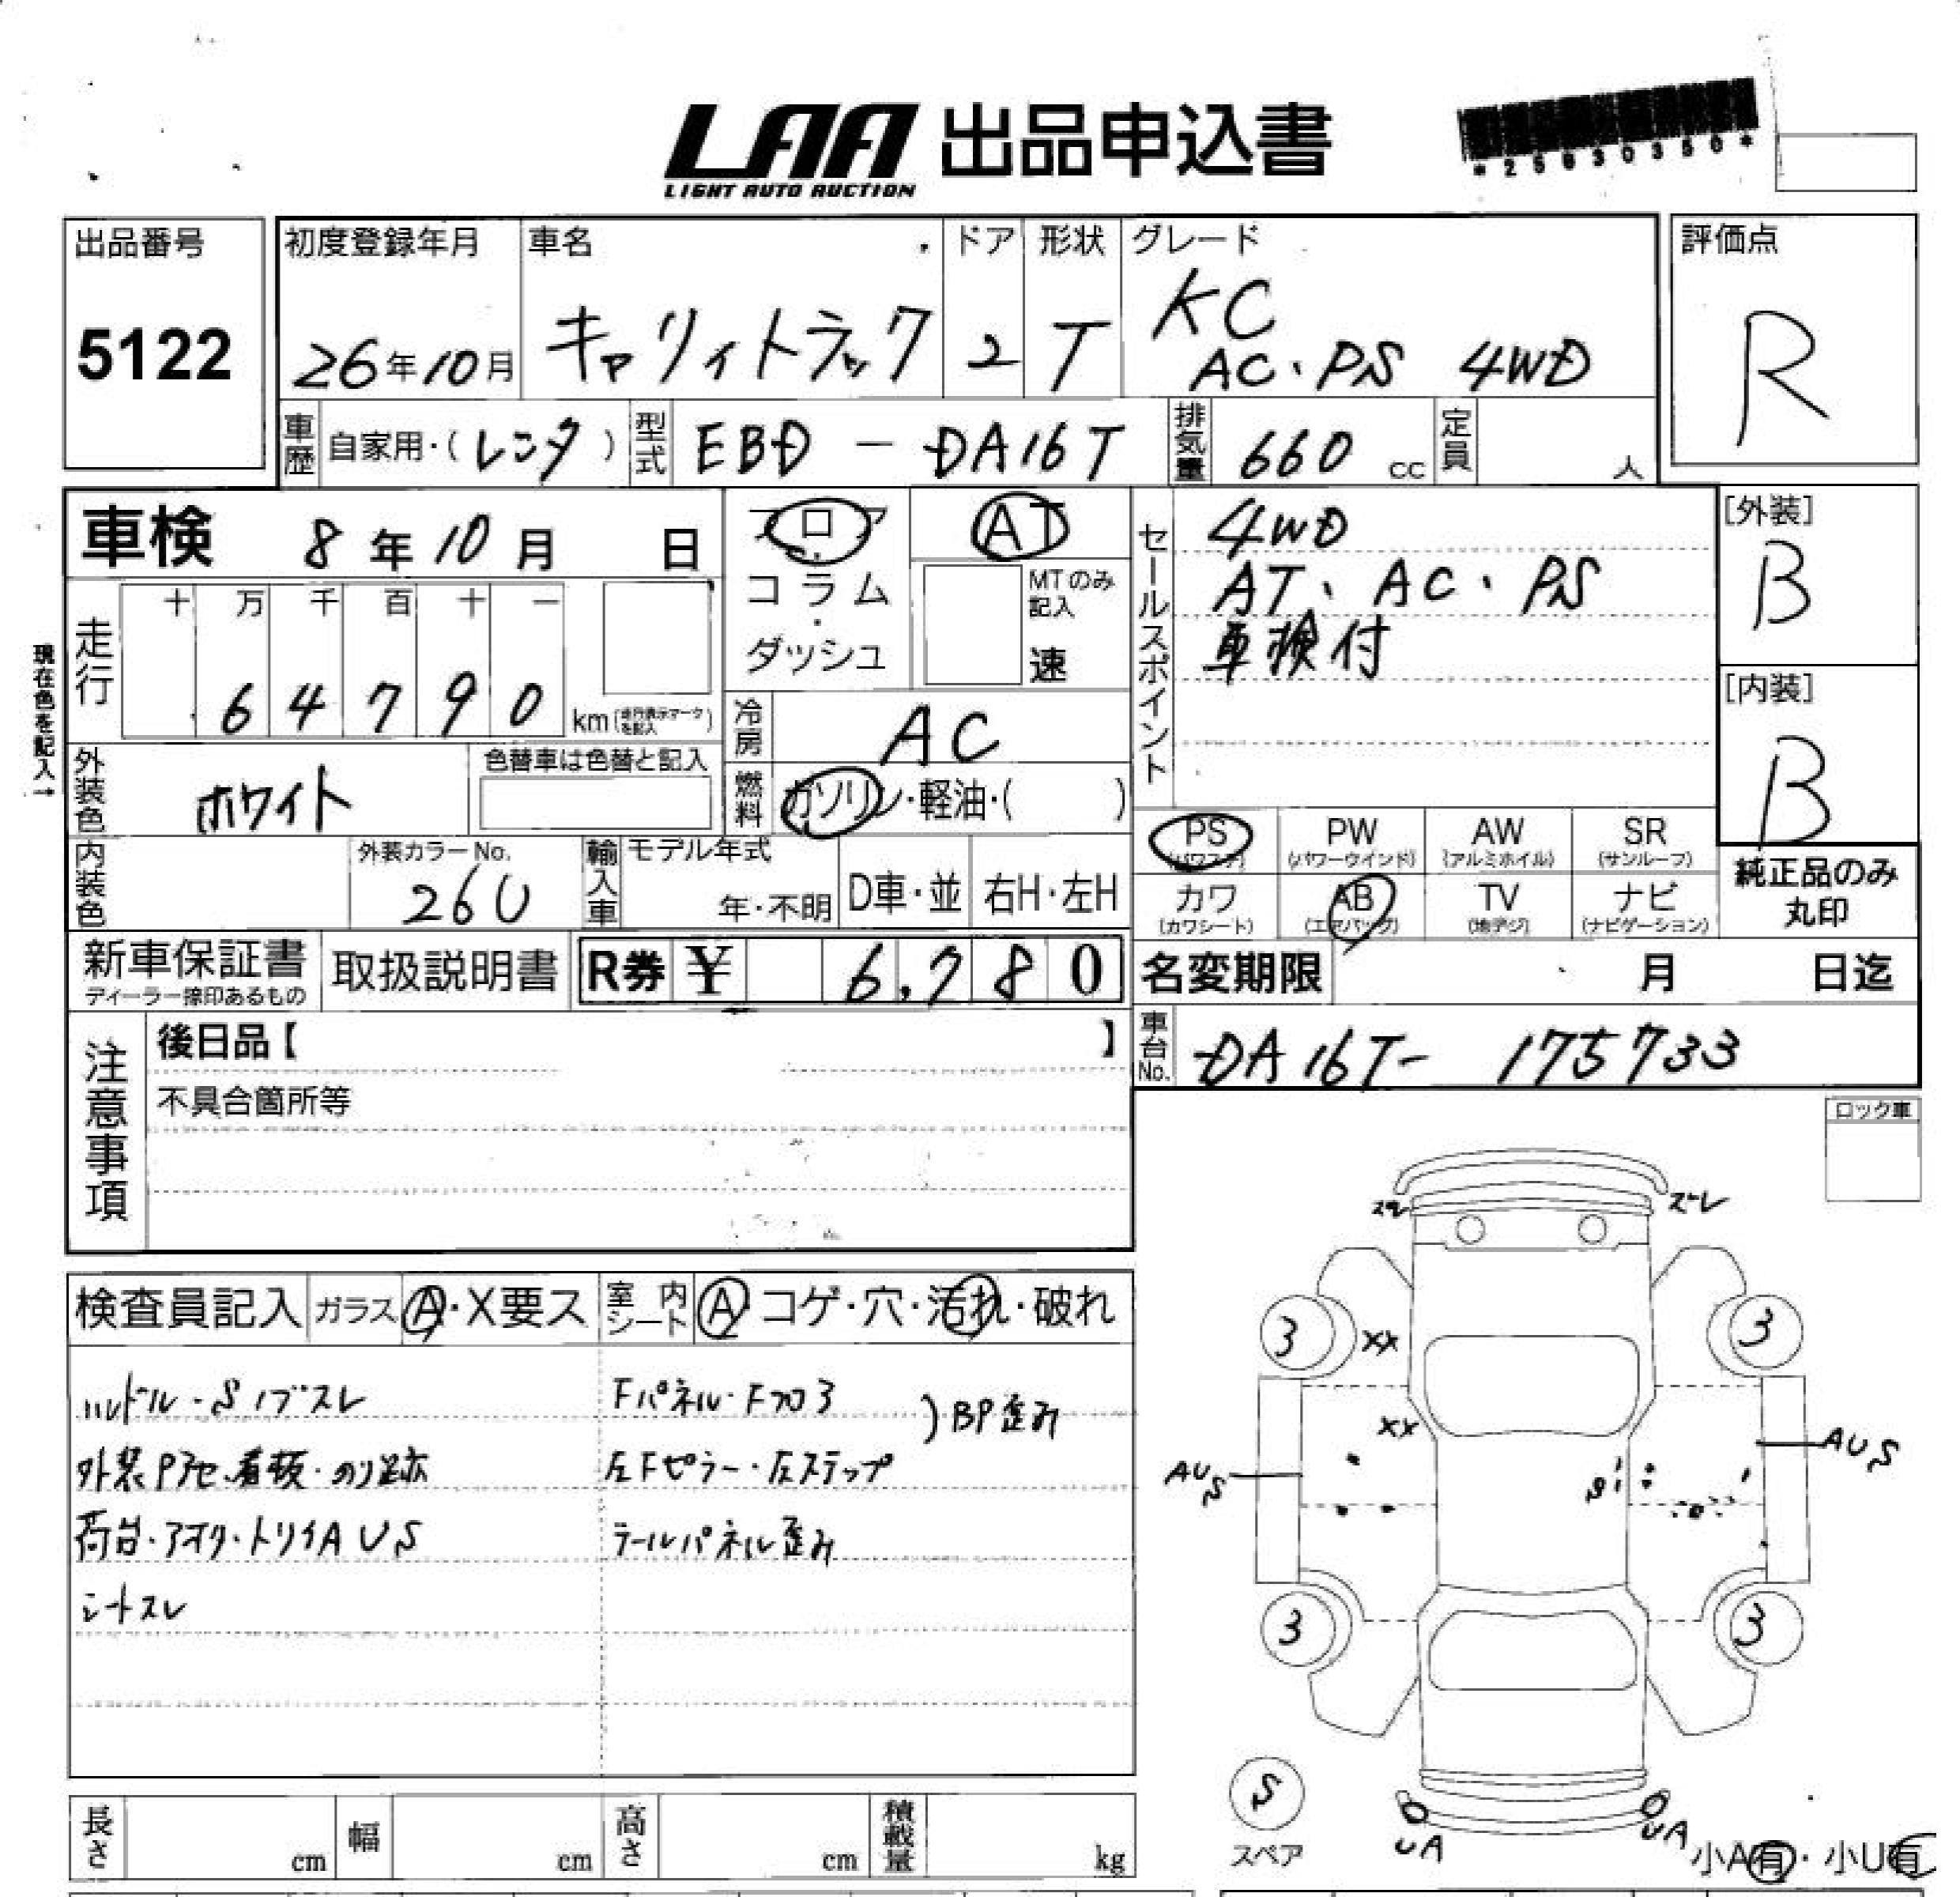 LAA 出品申込書
LIGHT AUTO AUCTION
*25630350*
出品番号
5122
初度登録年月
26年10月
車名
キャリィトラック
ドア
2
形状
T
グレード
KC
AC、PS 4WD
評価点
R
車歴 自家用・(レンタ)
型式 EBD - DA16T
排気量 660 cc
定員 人
車検 8年10月 日
フロア・コラム・ダッシュ
AT
MTのみ記入
速
セールスポイント
4WD
AT、AC、PS
車検付
[外装]
B
[内装]
B
現在色を記入→
走行
十 万 千 百 十 一
6 4 7 9 0 km(走行表示マークを記入)
冷房 AC
燃料 ガソリン・軽油・( )
外装色 ホワイト
色替車は色替と記入
内装色
外装カラーNo.
26U
輸入車
モデル年式
年・不明
D車・並
右H・左H
PS (パワステ)
PW (パワーウインド)
AW (アルミホイル)
SR (サンルーフ)
カワ (カワシート)
AB (エアバッグ)
TV (地デジ)
ナビ (ナビゲーション)
純正品のみ
丸印
新車保証書
ディーラー捺印あるもの
取扱説明書
R券 ¥ 6,780
名変期限 月 日迄
注意事項
後日品【 】
不具合箇所等
車台No. DA16T- 175733
ロック車
検査員記入
ガラス A・X要ス
室内シート A・コゲ・穴・汚れ・破れ
ハンドル・Sノブスレ
外装Pアセ、看板・のり跡
荷台・アオリ・トリイAUS
シートスレ
Fパネル・Fフロ3
左Fピラー・左ステップ
)BP歪み
テールパネル歪み
ズレ
ズレ
3
XX
3
XX
AUS
AUS
S
3
3
S
スペア
UA
UA
小A有・小U有
長さ cm
幅 cm
高さ cm
積載量 kg